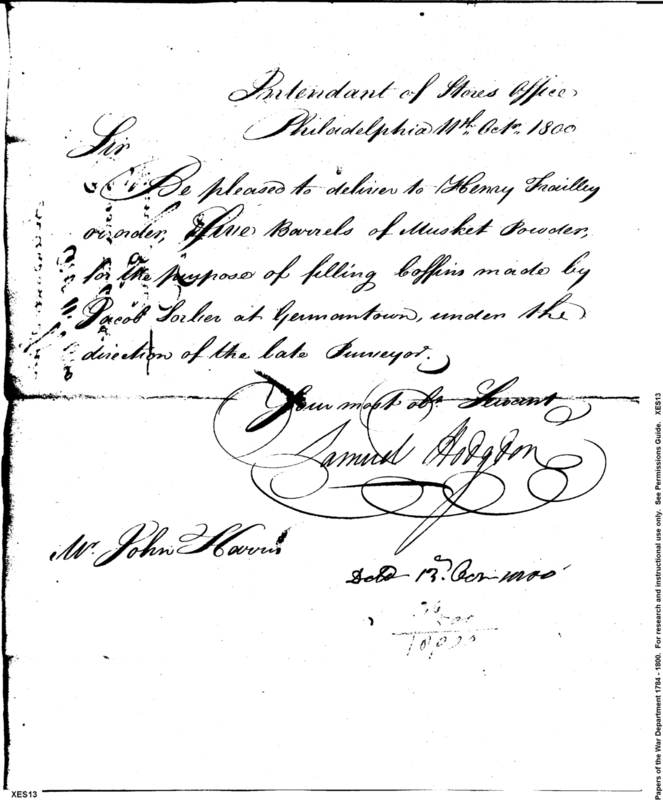 Intendant of Stores Office
Philadelphia 11th. Octr. 1800
Sir
Be pleased to deliver to Henry Frailley
or order, Five Barrels of Musket Powder,
for the purpose of filling Coffins made by
Jacob Sorber at Germantown, under the
direction of the late Purveyor.
Your most obt. Servant
Samuel Hodgdon
Mr. John Harris
Deld 13th. Octr 1800
XES13
Papers of the War Department 1784 - 1800. For research and instructional use only. See Permissions Guide. XES13